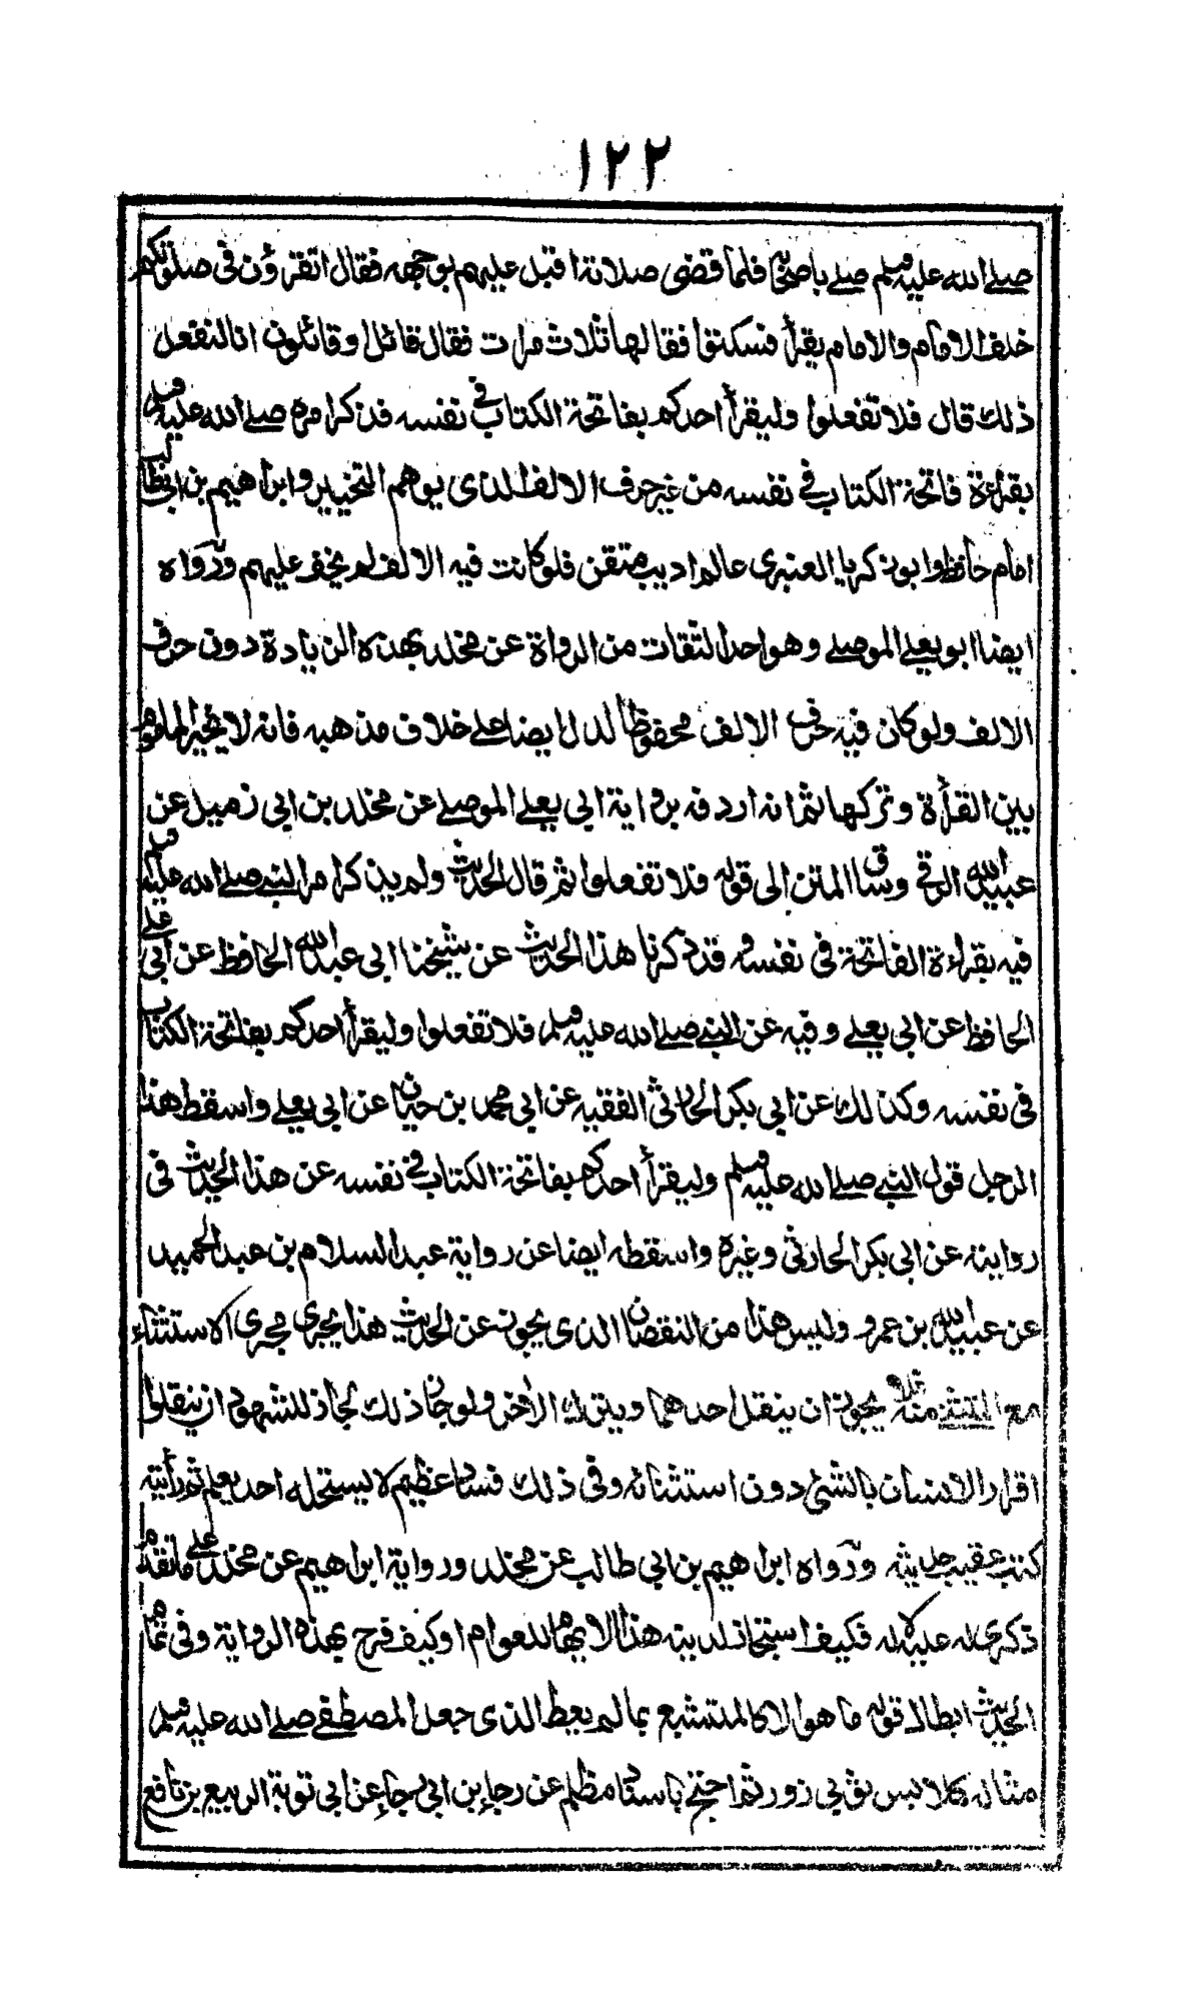 ١٢٢
صلى الله عليه وسلم صلى باصحابه فلما قضى صلاته اقبل عليهم بوجهه فقال اتقرؤن فى صلوتكم
خلف الامام والامام يقرأ فسكتوا فقالها ثلاث مرات فقال قائل او قائلون انا لنفعل
ذلك قال فلا تفعلوا وليقرأ احدكم بفاتحة الكتاب فى نفسه فذكر امره صلى الله عليه وسلم
بقراءة فاتحة الكتاب فى نفسه من غير حرف الالف الذى يوهم التخيير وابراهيم بن ابى طالب
امام حافظ وابو زكريا العنبرى عالم اديب متقن فلو كانت فيه الالف لم يخف عليهم ورواه
ايضا ابو يعلى الموصلى وهو احد الثقات من الرواة عن مخلد بهذه الزيادة دون حرف
الالف ولو كان فيه حرف الالف محفوظا لدل ايضا على خلاف مذهبه فانه لا يخير الماموم
بين القرأة وتركها ثم انه اردفه برواية ابى يعلى الموصلى عن مخلد بن ابى زميل عن
عبيد الله الرقى وساق المتن الى قوله فلا تفعلوا ثم قال الحديث ولم يذكر امر النبى صلى الله عليه وسلم
فيه بقراءة الفاتحة فى نفسه وقد ذكرنا هذا الحديث عن شيخنا ابى عبد الله الحافظ عن ابى على
الحافظ عن ابى يعلى وفيه عن النبى صلى الله عليه وسلم فلا تفعلوا وليقرأ احدكم بفاتحة الكتاب
فى نفسه وكذلك عن ابى بكر الحارثى الفقيه عن ابى محمد بن حيان عن ابى يعلى واسقط هذا
الرجل قول النبى صلى الله عليه وسلم وليقرأ احدكم بفاتحة الكتاب فى نفسه عن هذا الحديث فى
روايته عن ابى بكر الحارثى وغيره واسقطه ايضا عن رواية عبد السلام بن عبد الحميد
عن عبيد الله بن عمرو وليس هذا من النقصان الذى يجوز عن الحديث هذا يجرى مجرى الاستثناء
مع المستثنى منه فلا يجوز ان ينقل احدهما ويترك الاخر ولو جاز ذلك لجاز للشهود ان ينقلوا
اقرار الانسان بالشئ دون استثنائه وفى ذلك فساد عظيم لا يستحله احد يعلم ثم رأيته
كتب عقيب حديثه ورواه ابراهيم بن ابى طالب عن مخلد ورواية ابراهيم عن مخلد على ما تقدم
ذكرى له عليه لا له فكيف استجاز لدينه هذا الابهام للعوام او كيف فرح بهذه الرواية وفى تمام
الحديث ابطال قوله ما هو الا كالمتشبع بما لم يعط الذى جعل المصطفى صلى الله عليه وسلم
مثاله كلابس ثوبى زور ثم احتج باسناد مظلم عن رجاء بن ابى رجاء عن ابى توبة الربيع بن نافع